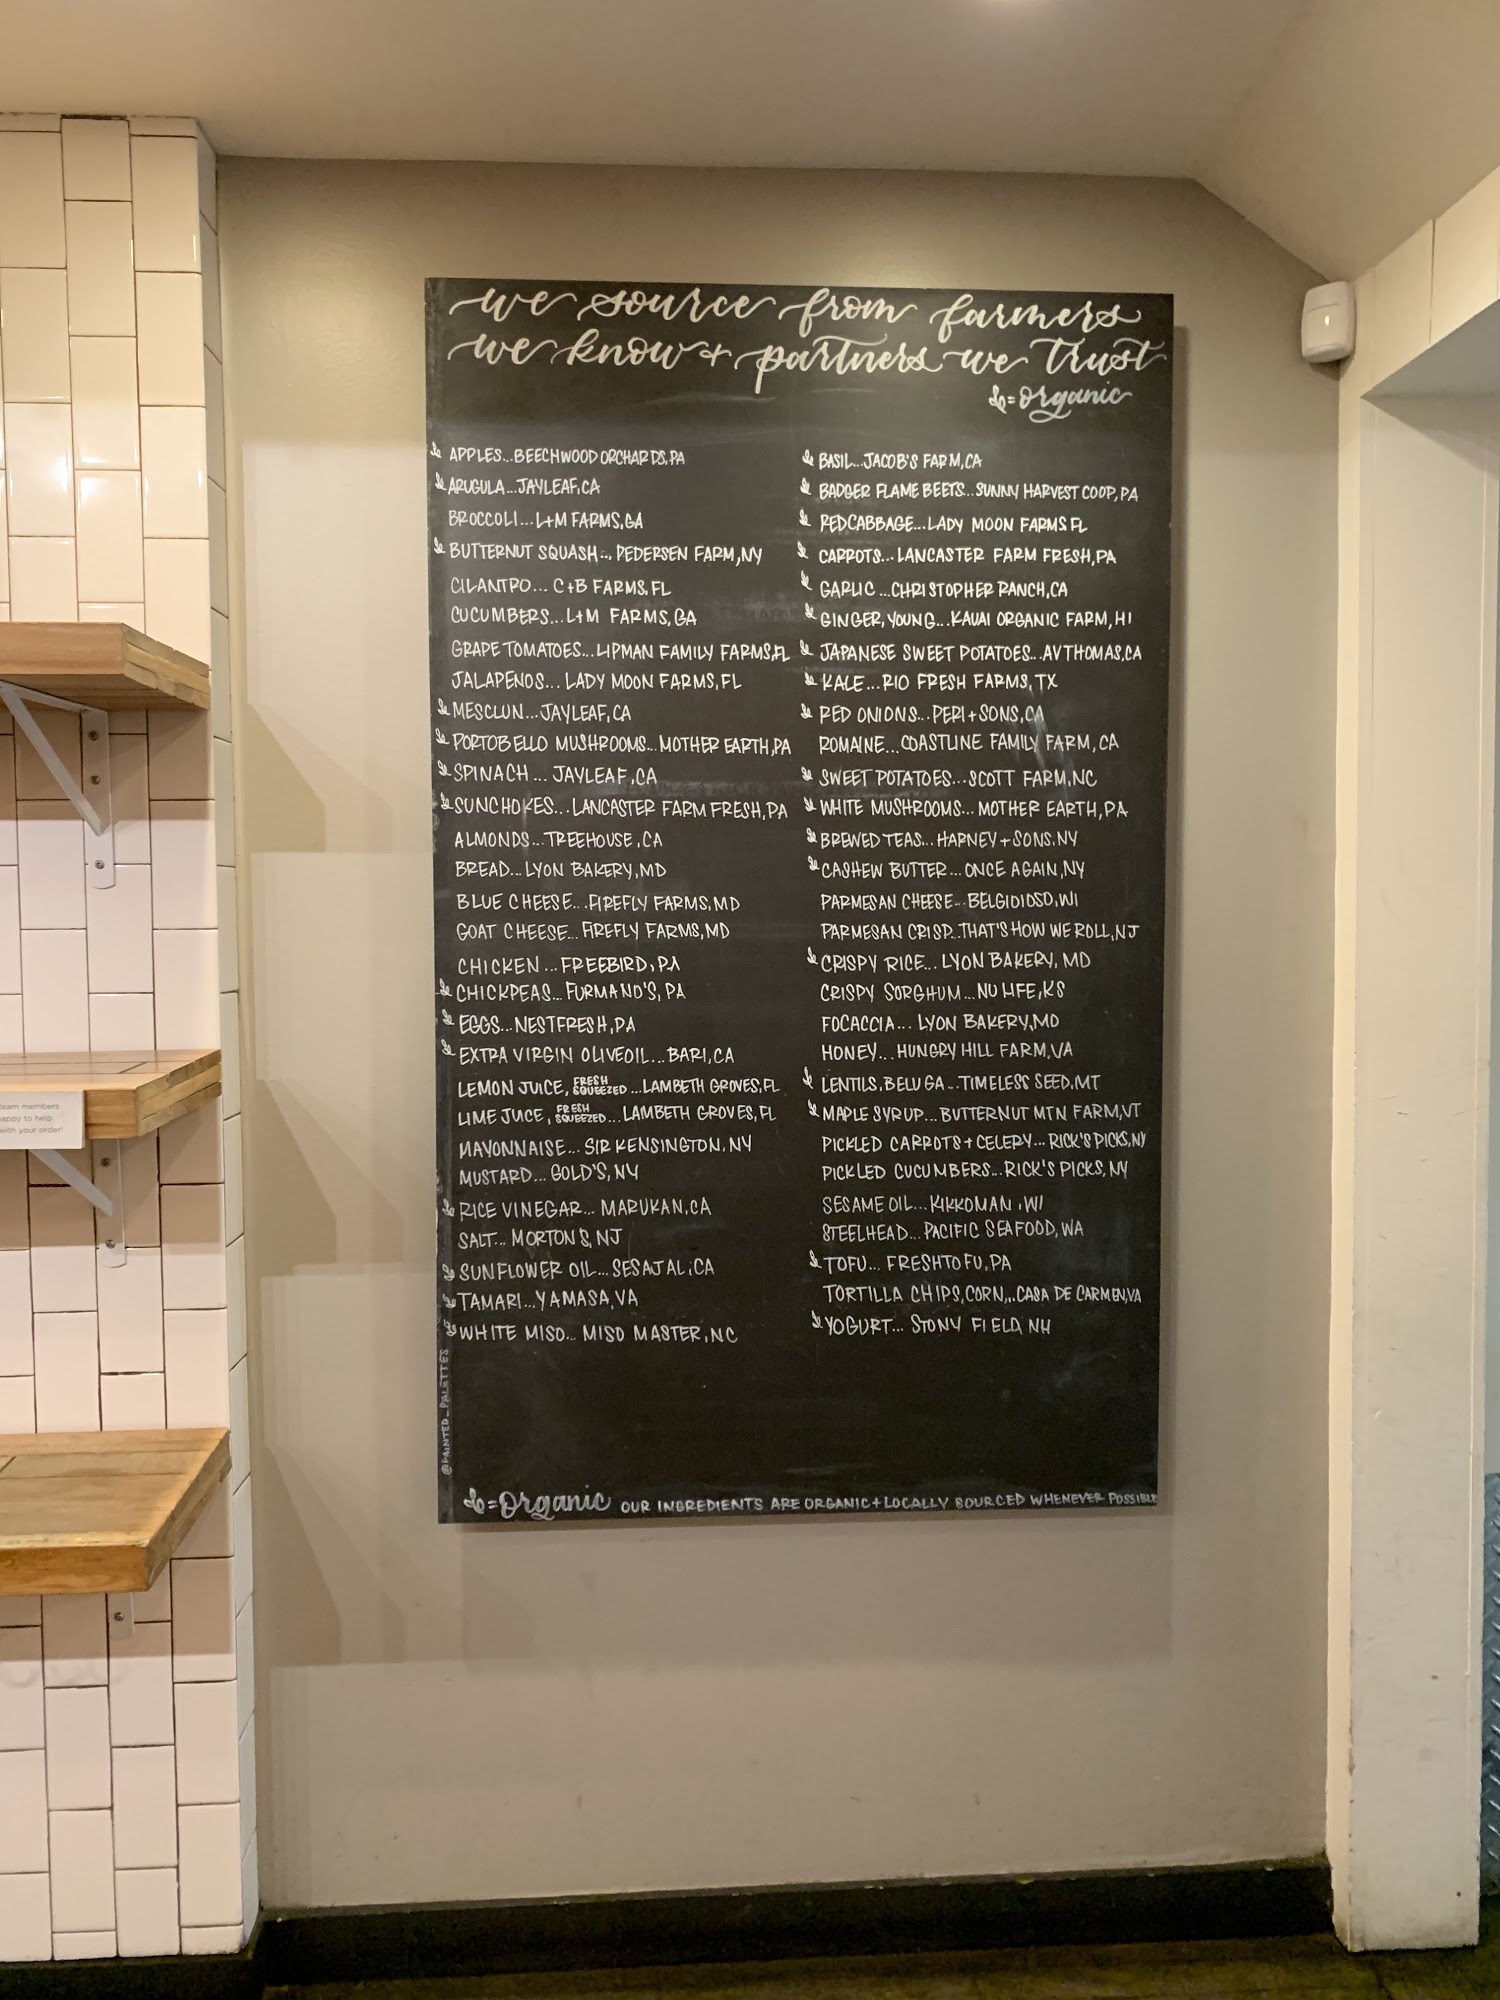 we source from farmers
we know + partners we trust
= organic
APPLES...BEECHWOOD ORCHARDS, PA
ARUGULA...JAYLEAF, CA
BROCCOLI...L+M FARMS, GA
BUTTERNUT SQUASH... PEDERSEN FARM, NY
CILANTRO... C+B FARMS, FL
CUCUMBERS...L+M FARMS, GA
GRAPE TOMATOES...LIPMAN FAMILY FARMS, FL
JALAPENOS... LADY MOON FARMS, FL
MESCLUN...JAYLEAF, CA
PORTOBELLO MUSHROOMS...MOTHER EARTH, PA
SPINACH... JAYLEAF, CA
SUNCHOKES...LANCASTER FARM FRESH, PA
ALMONDS...TREEHOUSE, CA
BREAD...LYON BAKERY, MD
BLUE CHEESE...FIREFLY FARMS, MD
GOAT CHEESE... FIREFLY FARMS, MD
CHICKEN...FREEBIRD, PA
CHICKPEAS...FURMANO'S, PA
EGGS...NESTFRESH, PA
EXTRA VIRGIN OLIVE OIL...BARI, CA
LEMON JUICE, FRESH SQUEEZED...LAMBETH GROVES, FL
LIME JUICE, FRESH SQUEEZED...LAMBETH GROVES, FL
MAYONNAISE... SIR KENSINGTON, NY
MUSTARD... GOLD'S, NY
RICE VINEGAR... MARUKAN, CA
SALT... MORTONS, NJ
SUNFLOWER OIL...SESAJAL, CA
TAMARI...YAMASA, VA
WHITE MISO... MISO MASTER, NC
BASIL...JACOB'S FARM, CA
BADGER FLAME BEETS...SUNNY HARVEST COOP, PA
RED CABBAGE...LADY MOON FARMS FL
CARROTS...LANCASTER FARM FRESH, PA
GARLIC...CHRISTOPHER RANCH, CA
GINGER, YOUNG...KAUAI ORGANIC FARM, HI
JAPANESE SWEET POTATOES...AV THOMAS, CA
KALE...RIO FRESH FARMS, TX
RED ONIONS...PERI+SONS, CA
ROMAINE...COASTLINE FAMILY FARM, CA
SWEET POTATOES...SCOTT FARM, NC
WHITE MUSHROOMS...MOTHER EARTH, PA
BREWED TEAS...HARNEY+SONS, NY
CASHEW BUTTER...ONCE AGAIN, NY
PARMESAN CHEESE...BELGIOIOSO, WI
PARMESAN CRISP...THAT'S HOW WE ROLL, NJ
CRISPY RICE...LYON BAKERY, MD
CRISPY SORGHUM...NU LIFE, KS
FOCACCIA... LYON BAKERY, MD
HONEY...HUNGRY HILL FARM, VA
LENTILS, BELUGA...TIMELESS SEED, MT
MAPLE SYRUP...BUTTERNUT MTN FARM, VT
PICKLED CARROTS+CELERY...RICK'S PICKS, NY
PICKLED CUCUMBERS...RICK'S PICKS, NY
SESAME OIL...KIKKOMAN, WI
STEELHEAD...PACIFIC SEAFOOD, WA
TOFU... FRESHTOFU, PA
TORTILLA CHIPS, CORN...CASA DE CARMEN, VA
YOGURT... STONY FIELD, NH
@PAINTED_PALETTES
= Organic OUR INGREDIENTS ARE ORGANIC + LOCALLY SOURCED WHENEVER POSSIBLE
team members
happy to help
with your order!